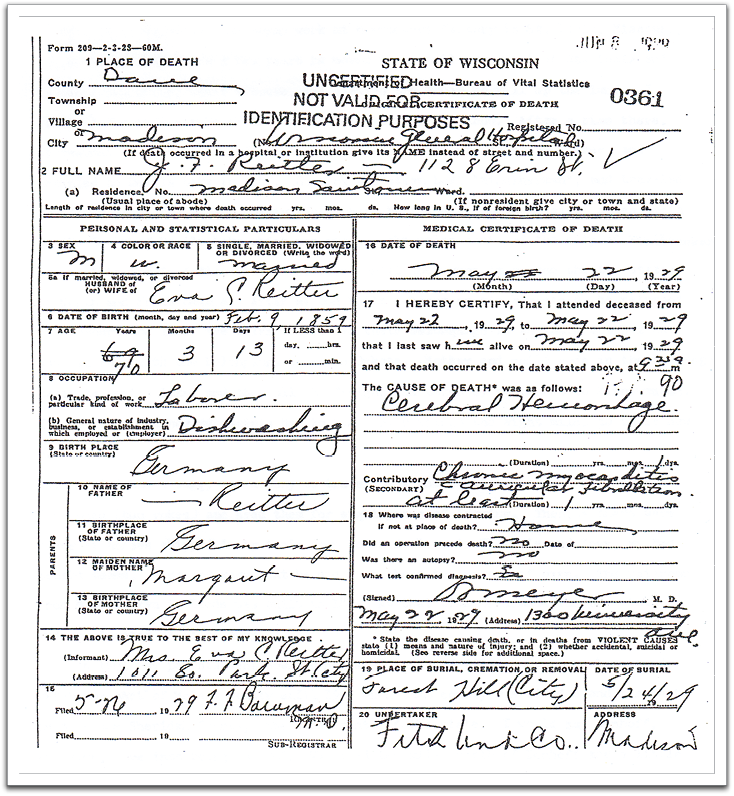 Form 209—2-3-28—60M.
JUN 8 1929
1 PLACE OF DEATH
STATE OF WISCONSIN
County Dane
Health—Bureau of Vital Statistics
UNCERTIFIED
NOT VALID FOR
IDENTIFICATION PURPOSES
CERTIFICATE OF DEATH
0361
Township
or
Village
or
Registered No.
City Madison (No. Wisconsin General Hospital St. Ward)
(If death occurred in a hospital or institution give its NAME instead of street and number.)
2 FULL NAME J. F. Reitter — 1128 Erin St.
(a) Residence. No. Madison St. Ward.
(Usual place of abode) (If nonresident give city or town and state)
Length of residence in city or town where death occurred yrs. mos. ds. How long in U. S., if of foreign birth? yrs. mos. ds.
PERSONAL AND STATISTICAL PARTICULARS
3 SEX M
4 COLOR OR RACE w.
5 SINGLE, MARRIED, WIDOWED OR DIVORCED (Write the word) married
5a If married, widowed, or divorced
HUSBAND of
(or) WIFE of Eva C. Reitter
6 DATE OF BIRTH (month, day and year) Feb. 9 1859
7 AGE Years Months Days If LESS than 1
69 3 13 day, hrs.
70 or min.
8 OCCUPATION
(a) Trade, profession, or
particular kind of work Laborer.
(b) General nature of industry,
business, or establishment in
which employed or (employer) Dishwashing
9 BIRTH PLACE
(State or country) Germany
PARENTS
10 NAME OF
FATHER — Reitter
11 BIRTHPLACE
OF FATHER
(State or country) Germany
12 MAIDEN NAME
OF MOTHER Margaut —
13 BIRTHPLACE
OF MOTHER
(State or country) Germany
14 THE ABOVE IS TRUE TO THE BEST OF MY KNOWLEDGE.
(Informant) Mrs Eva C Reitter
(Address) 1011 So. Park St. City
15
Filed 5-26 1929 F. F. Bowman
M.D.
Filed 19
SUB-REGISTRAR
MEDICAL CERTIFICATE OF DEATH
16 DATE OF DEATH
May 22 1929
(Month) (Day) (Year)
17 I HEREBY CERTIFY, That I attended deceased from
May 22, 1929, to May 22, 1929
that I last saw h im alive on May 22, 1929
and that death occurred on the date stated above, at m
The CAUSE OF DEATH* was as follows: 90
Cerebral Hemorrhage.
(Duration) yrs. mos. ds.
Contributory Chronic myocarditis
(SECONDARY) Auricular fibrillation.
at least (Duration) 1 yrs. mos. ds.
18 Where was disease contracted
if not at place of death? Home
Did an operation precede death? no Date of
Was there an autopsy? no
What test confirmed diagnosis?
(Signed) Meyer M. D.
May 22, 1929 (Address) 1300 University
Ave.
* State the disease causing death, or in deaths from VIOLENT CAUSES
state (1) means and nature of injury; and (2) whether accidental, suicidal or
homicidal. (See reverse side for additional space.)
19 PLACE OF BURIAL, CREMATION, OR REMOVAL
Forest Hill (City)
DATE OF BURIAL
5/24/29
19
20 UNDERTAKER
Fitch Und Co.
ADDRESS
Madison